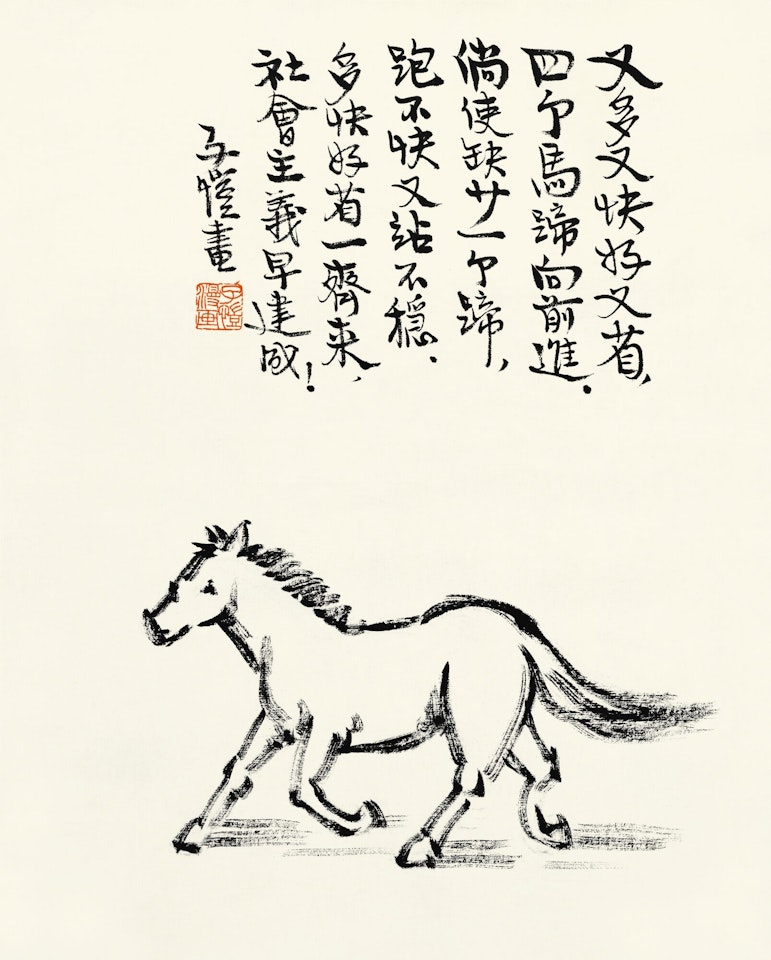 又多又快好又省，
四个馬蹄向前進．
倘使缺少一个蹄，
跑不快又站不穩．
多快好省一齊来，
社會主義早建成！
子愷畫
子愷漫画